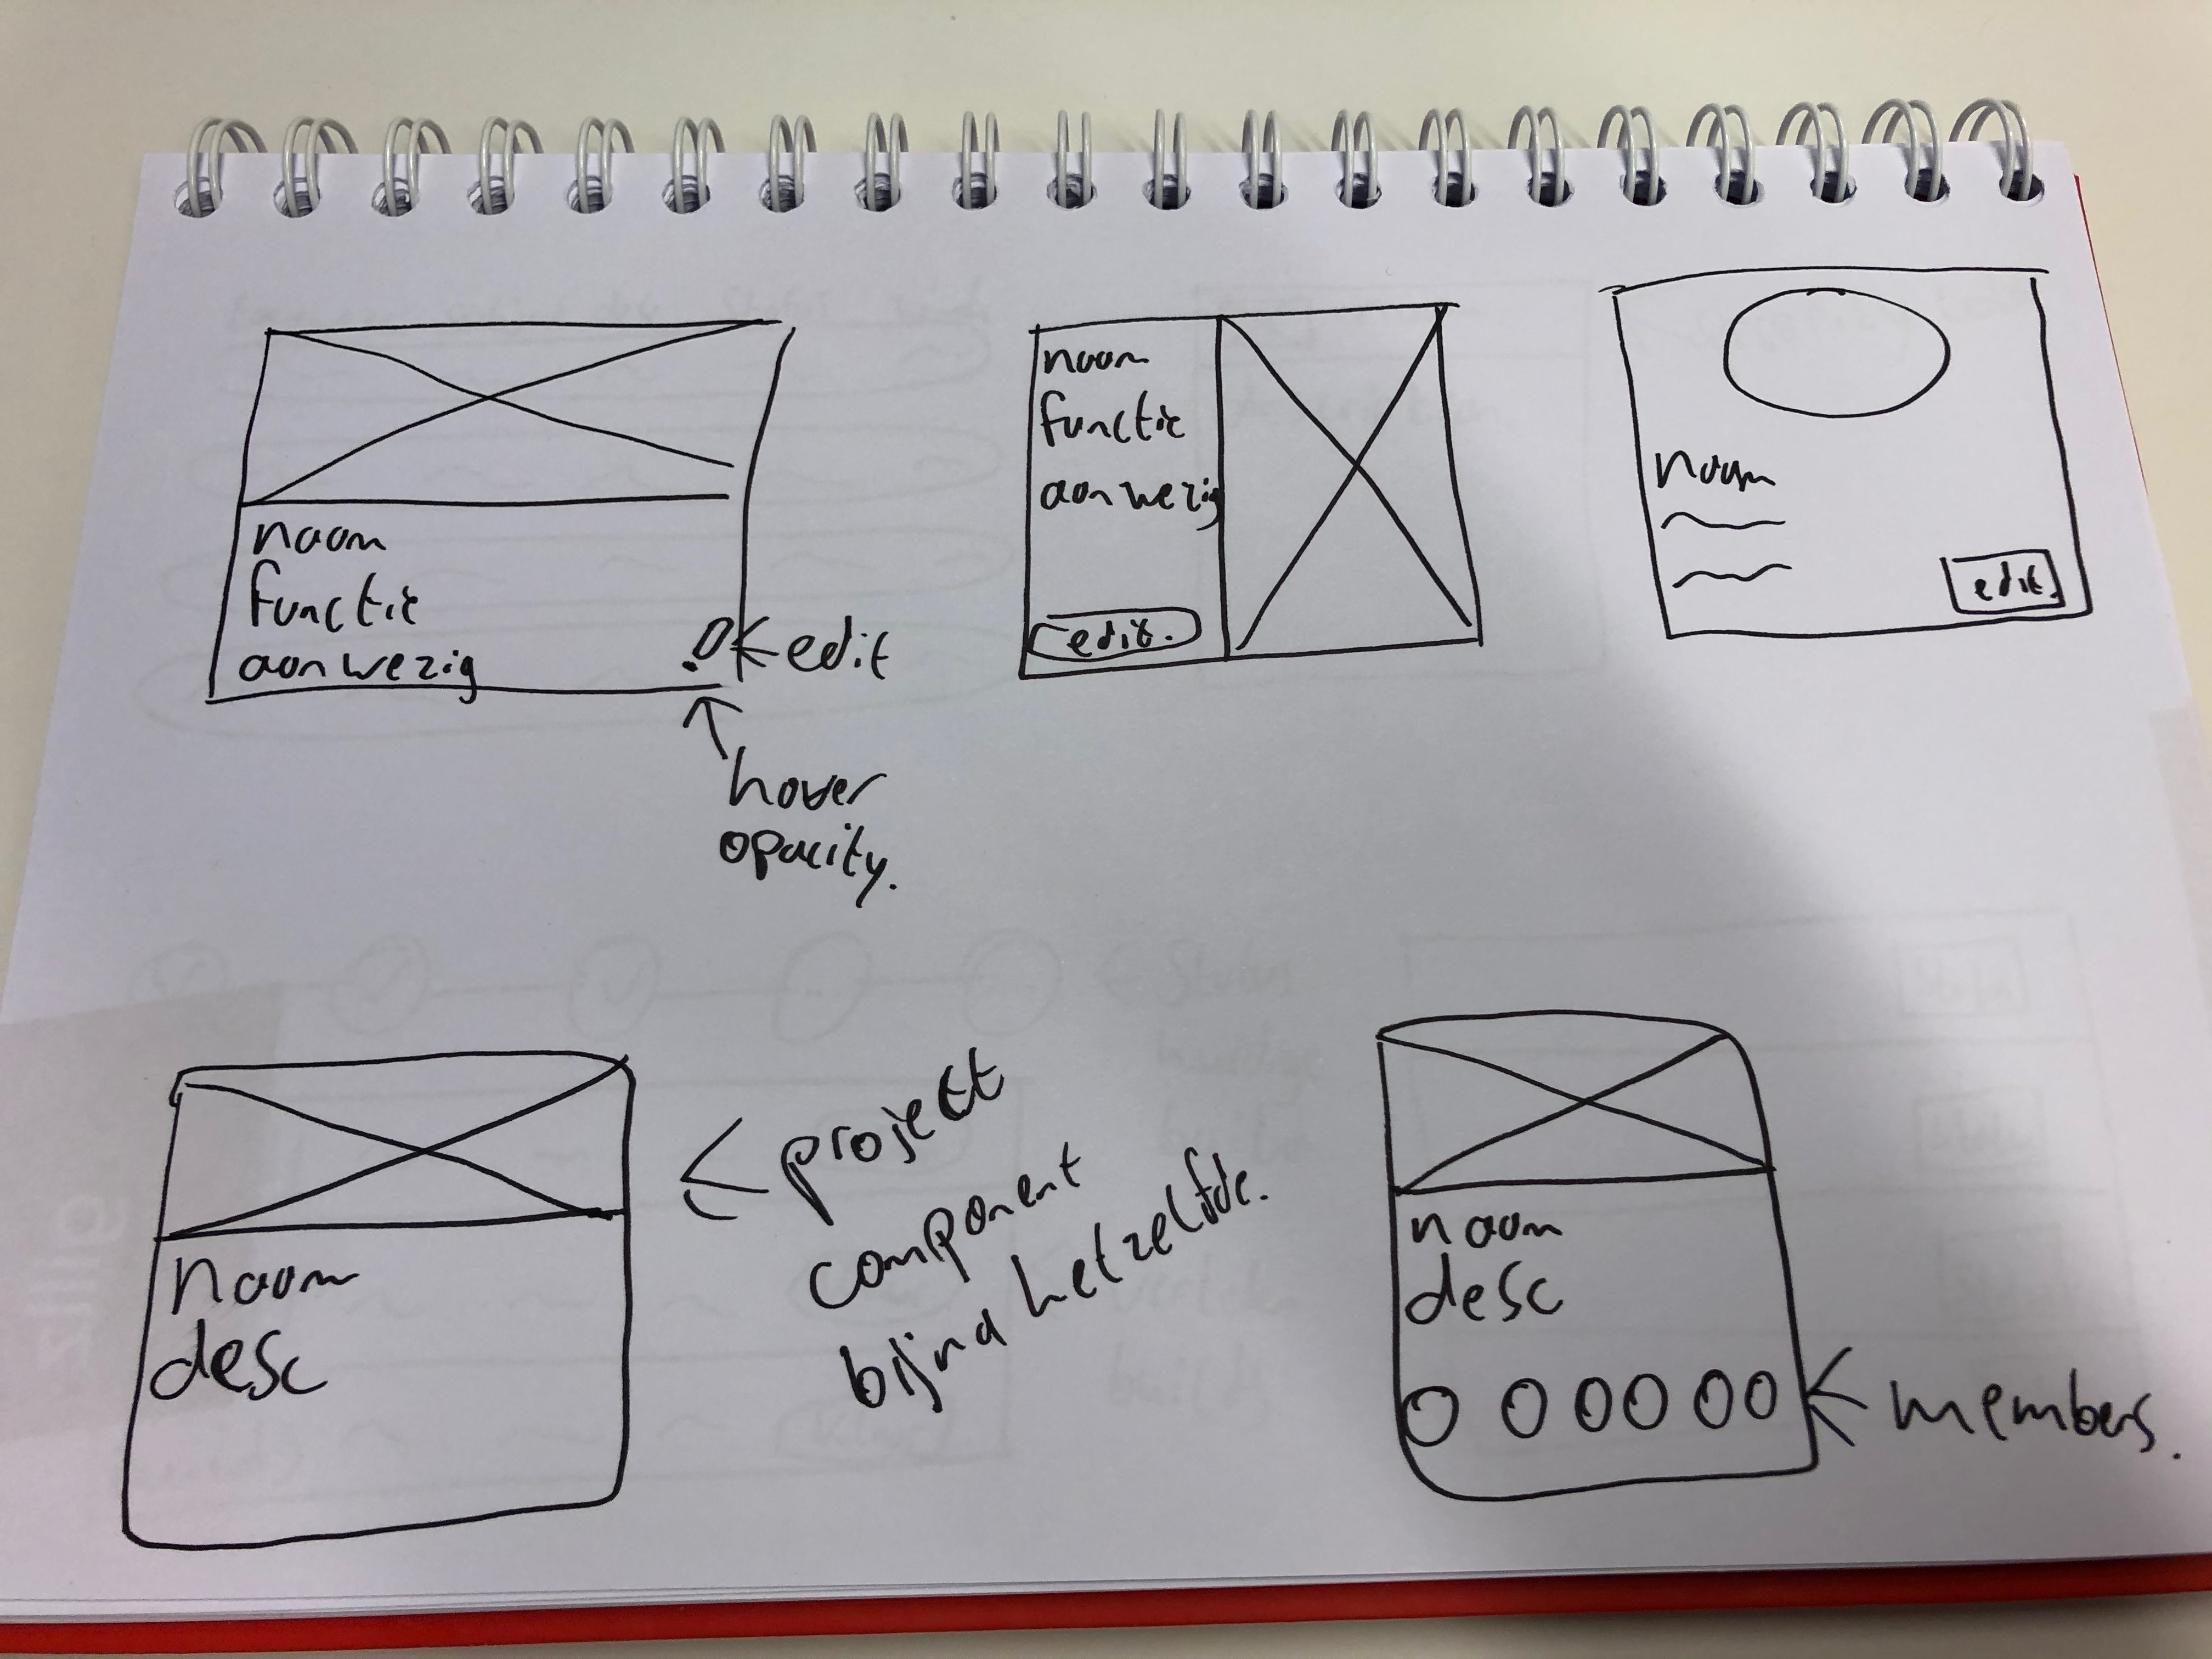 naam
functie
aanwezig
edit
hover
opacity.
naam
functie
aanwezig
edit.
naam
edit.
naam
desc
project
component
bijna hetzelfde.
naam
desc
members.